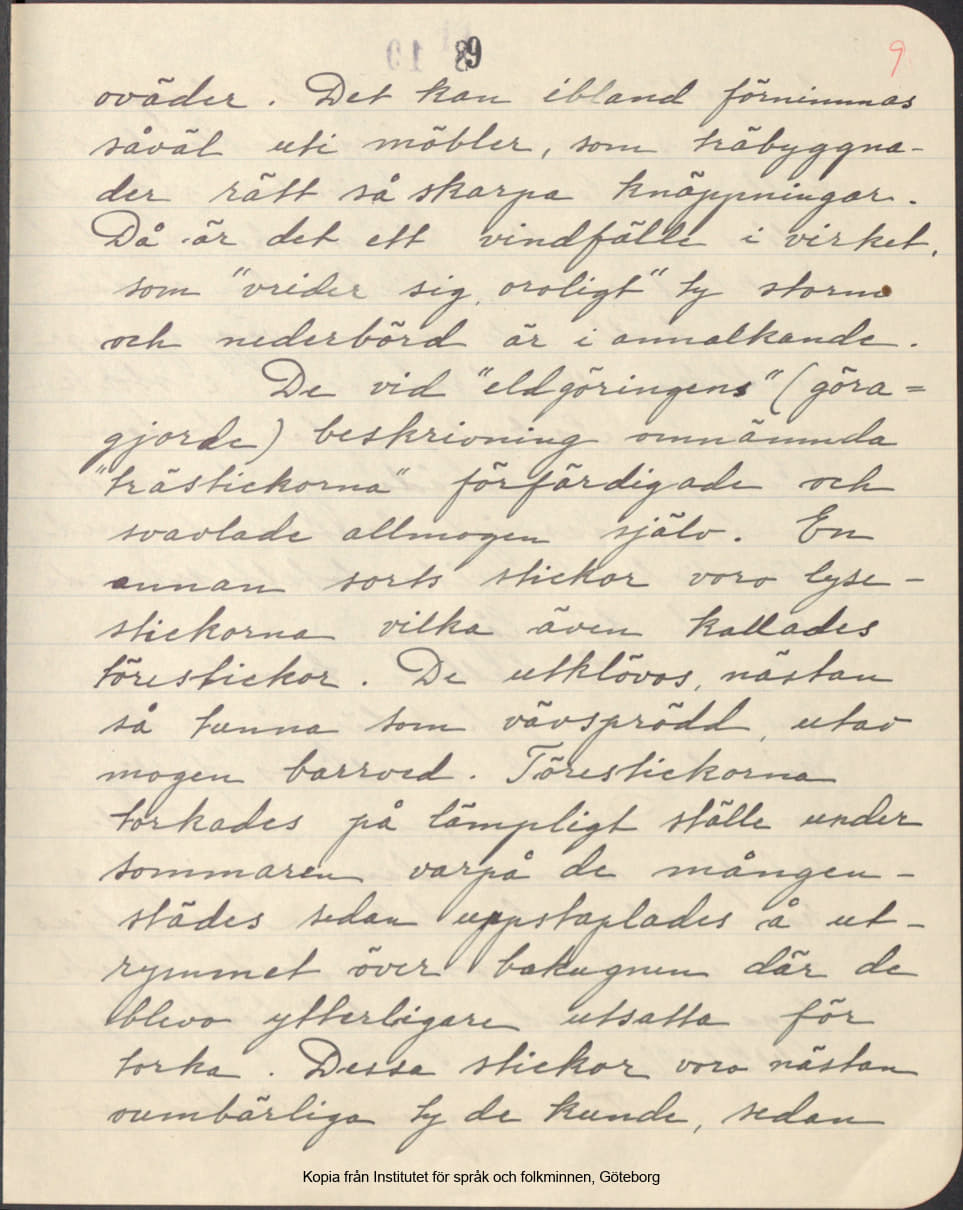 9
oväder. Det kan ibland förnimmas
såväl uti möbler, som träbyggna-
der rätt så skarpa knäppningar.
Då är det ett vindfälle i virket,
som "vrider sig oroligt" ty storm
och nederbörd är i annalkande.
De vid "eldgöringens" (göra=
gjorde) beskrivning omnämnda
"trästickorna" förfärdigade och
svavlade allmogen själv. En
annan sorts stickor voro lyse-
stickorna vilka även kallades
törestickor. De utklövos, nästan
så tunna som vävsprödd, utav
mogen barrved. Törestickorna
torkades på lämpligt ställe under
sommaren varpå de mången-
städes sedan uppstaplades å ut-
rymmet över bakugnen där de
blevo ytterligare utsatta för
torka. Dessa stickor voro nästan
oumbärliga ty de kunde, sedan
Kopia från Institutet för språk och folkminnen, Göteborg